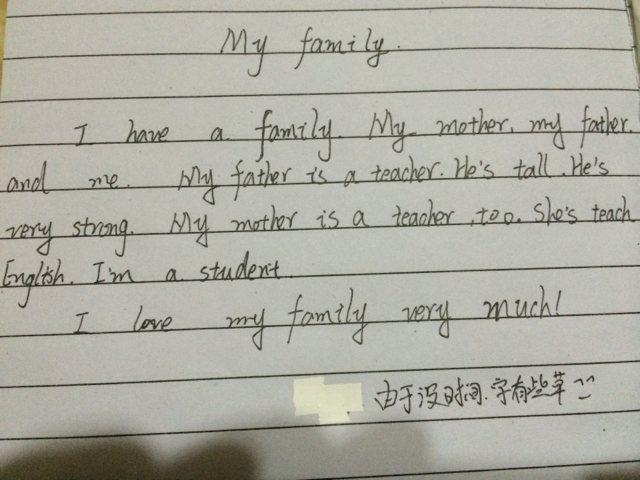 My family.
I have a family. My mother, my father.
and me. My father is a teacher. He's tall. He's
very strong. My mother is a teacher, too. She's teach
English. I'm a student.
I love my family very much!
由于没时间.字有些草